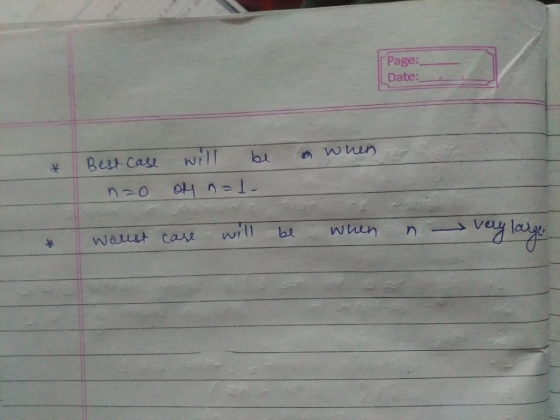 Page:
Date:
* Best case will be when
n=0 or n=1.
* worst case will be when n → very large.